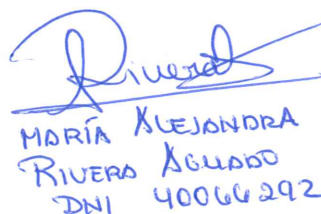 Rivera
MARÍA ALEJANDRA
RIVERA AGUADO
DNI 40066292